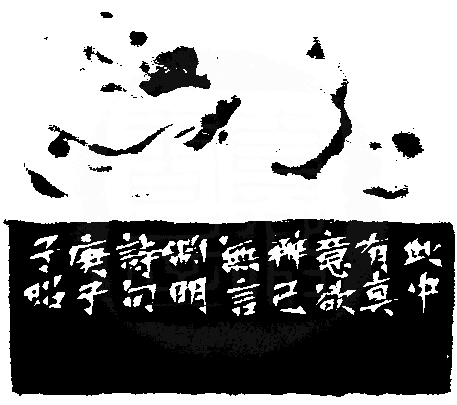 此中
有真
意欲
辨己
無言
淵明
詩句
庚子
子昭